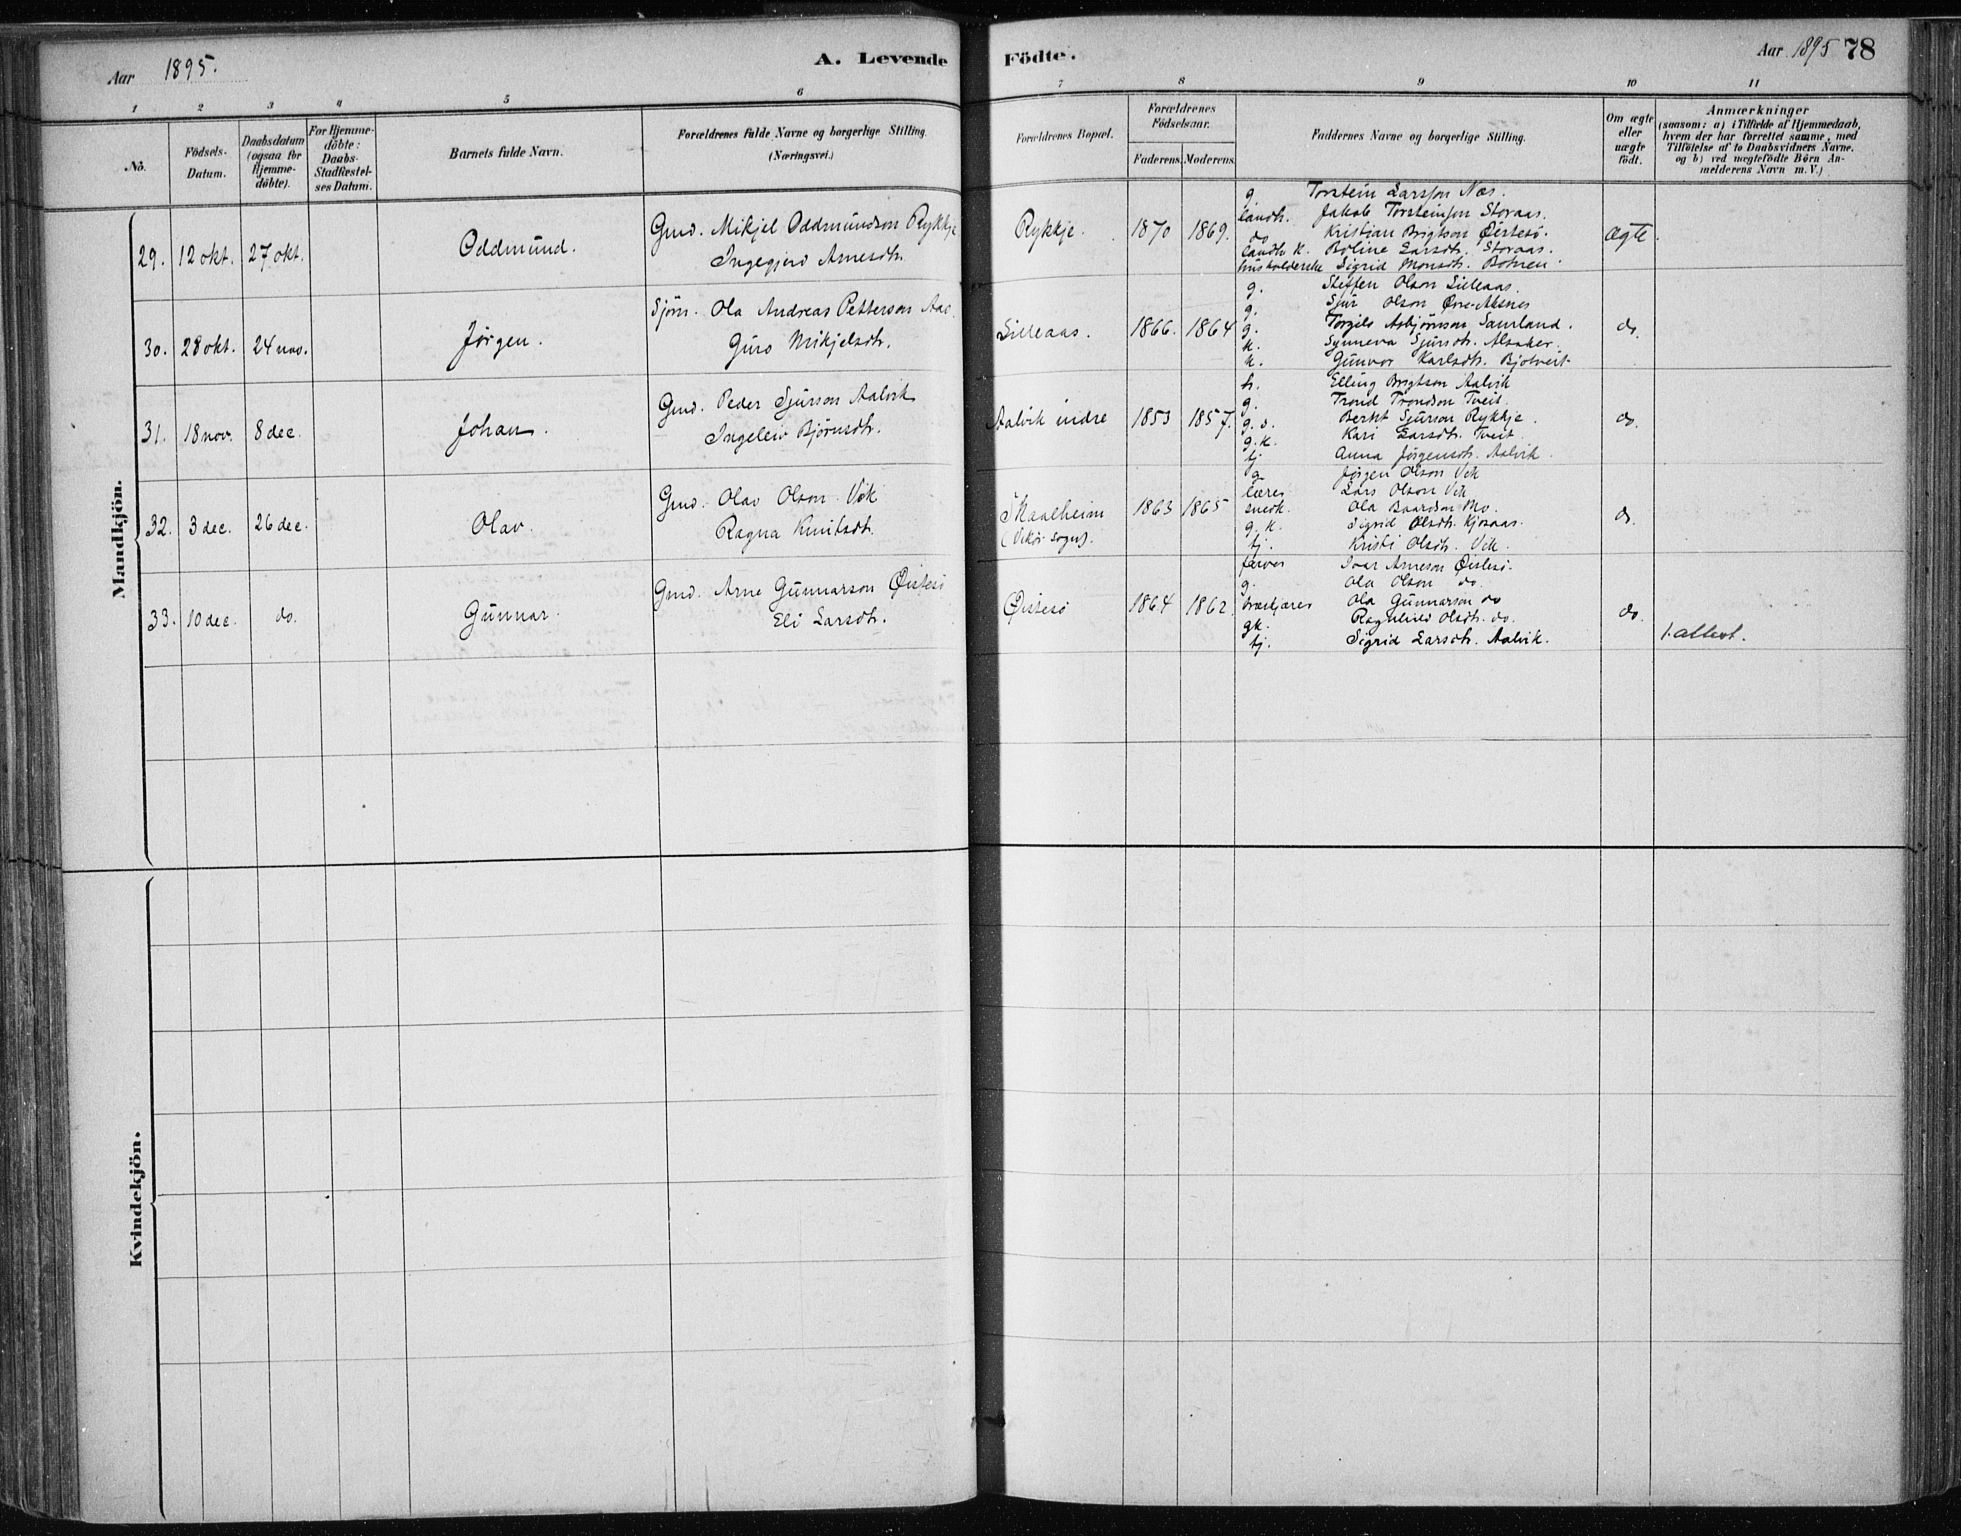 Aar 1895.
A. Levende Födte.
Aar 1895 78
1 2 3 4 5 6 7 8 9 10 11
No.
Födsels-Datum.
Daabsdatum (ogsaa for Hjemme-döbte).
For Hjemme-döbte: Daabs-Stadfæstel-ses Datum.
Barnets fulde Navn.
Forældrenes fulde Navne og borgerlige Stilling. (Næringsvei.)
Forældrenes Bopæl.
Forældrenes Födselsaar.
Faderens. Moderens.
Faddernes Navne og borgerlige Stilling.
Om ægte eller uægte födt.
Anmærkninger
(saasom: a) i Tilfælde af Hjemmedaab,
hvem der har forrettet samme, med
Tilföielse af to Daabsvidners Navne.
og b) ved uægtefödte Börn An-
melderens Navn m. V.)
Mandkjön.
29. 12 okt. 27 okt. Oddmund.
Gmd. Mikjel Oddmundson Rykkje
Ingegjerd Arnesdtr.
Rykkje. 1870 1869.
g. Torstein Larsson Næs.
landh. Jakob Torsteinson Storaas.
do Kristian Brigtson Øistesö.
landh. k. Boline Larsdtr. Storaas.
husholderske Sigrid Monsdtr. Botnen
Ægte.
30. 28 okt. 24 nov. Jørgen.
Sjöm. Ola Andreas Petterson Aas
Guro Mikjelsdtr.
Lilleaas. 1866. 1864
g. Steffen Olson Lilleaas.
g. Sjur Olson Øvre-Aksnes
g. Torgils Asbjørnson Samland.
k. Synneva Sjursdtr. Alsaker.
k. Gunvor Karlsdtr. Bjotveit
do.
31. 18 nov. 8 dec. Johan.
Gmd. Peder Sjurson Aalvik
Ingeleiv Bjørnsdtr.
Aalvik indre 1853 1857.
h. Elling Brigtson Aalvik
g. Trond Trondson Tveit.
g. s. Berht Sjurson Rykkje.
g. k. Kari Larsdtr. Tveit
tj Anna Jørgensdtr. Aalvik.
do.
32. 3 dec. 26 dec. Olav.
Gmd. Olav Olson Vik
Ragna Knutsdtr.
Maalheim (Vikör sogn). 1863 1865
g Jørgen Olson Vik
lærer Lars Olson Vik
snedk. Ola Baardson Mo.
g. k. Sigrid Olsdtr. Kjosaas.
tj. Kristi Olsdtr. Vik.
do.
33. 10 dec. do. Gunnar.
Gmd. Arne Gunnarson Øistesö
Eli Larsdtr.
Øistesö 1864 1862
farver Ivar Arneson Øistesö.
g. Ola Olson do.
Ola Gunnarson do
gk. Ragnhild Olsdtr. do.
tj. Sigrid Larsdtr. Aalvik.
do.
1. attest.
Kvindekjön.